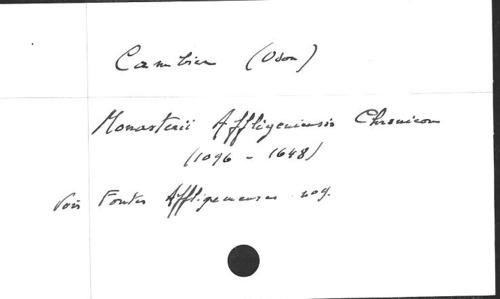 Cambier (Odon)
Monasterii Affligeniensis Chronicon
(1096 - 1648)
Voir Fontes Affligemenses no 9.